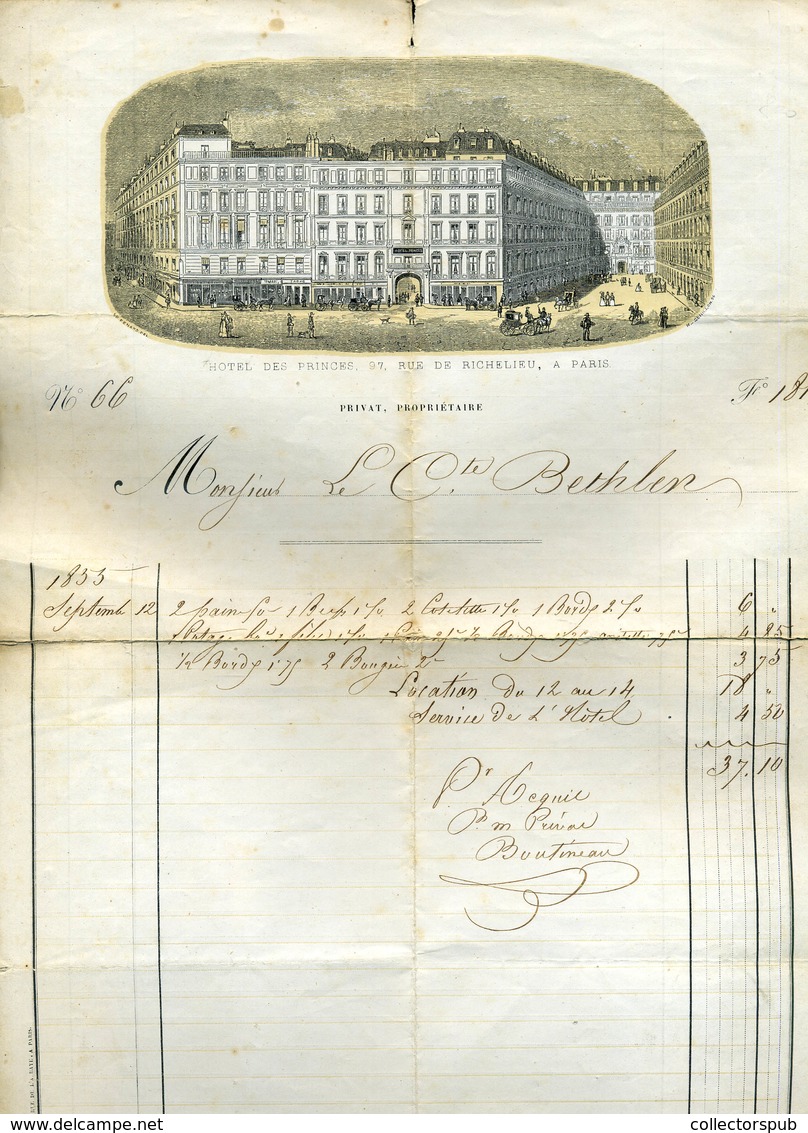 HOTEL DES PRINCES, 97, RUE DE RICHELIEU, A PARIS.
No 66
Fo 181
PRIVAT, PROPRIÉTAIRE
Monsieur Le Cte Bethlen
1855
Septemb 12 2 pain 1 Beef 2 Cotelette 1 Bord 6 "
4 25
1/2 Bord 1 75 2 Bougie 3 75
Location du 12 au 14 18 "
Service de L'Hôtel 4 50
37.10
Pr Acquit
Pr m Privat
Boutineau
A PARIS.
delcampe.net
collectorspub